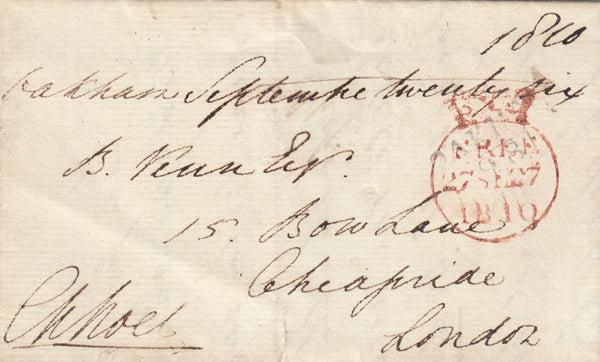 1810
Oakham Septembr twenty six
B. Venn Esqr.
15. Bow Lane
Cheapside
London
FREE
27 SE 27
1810